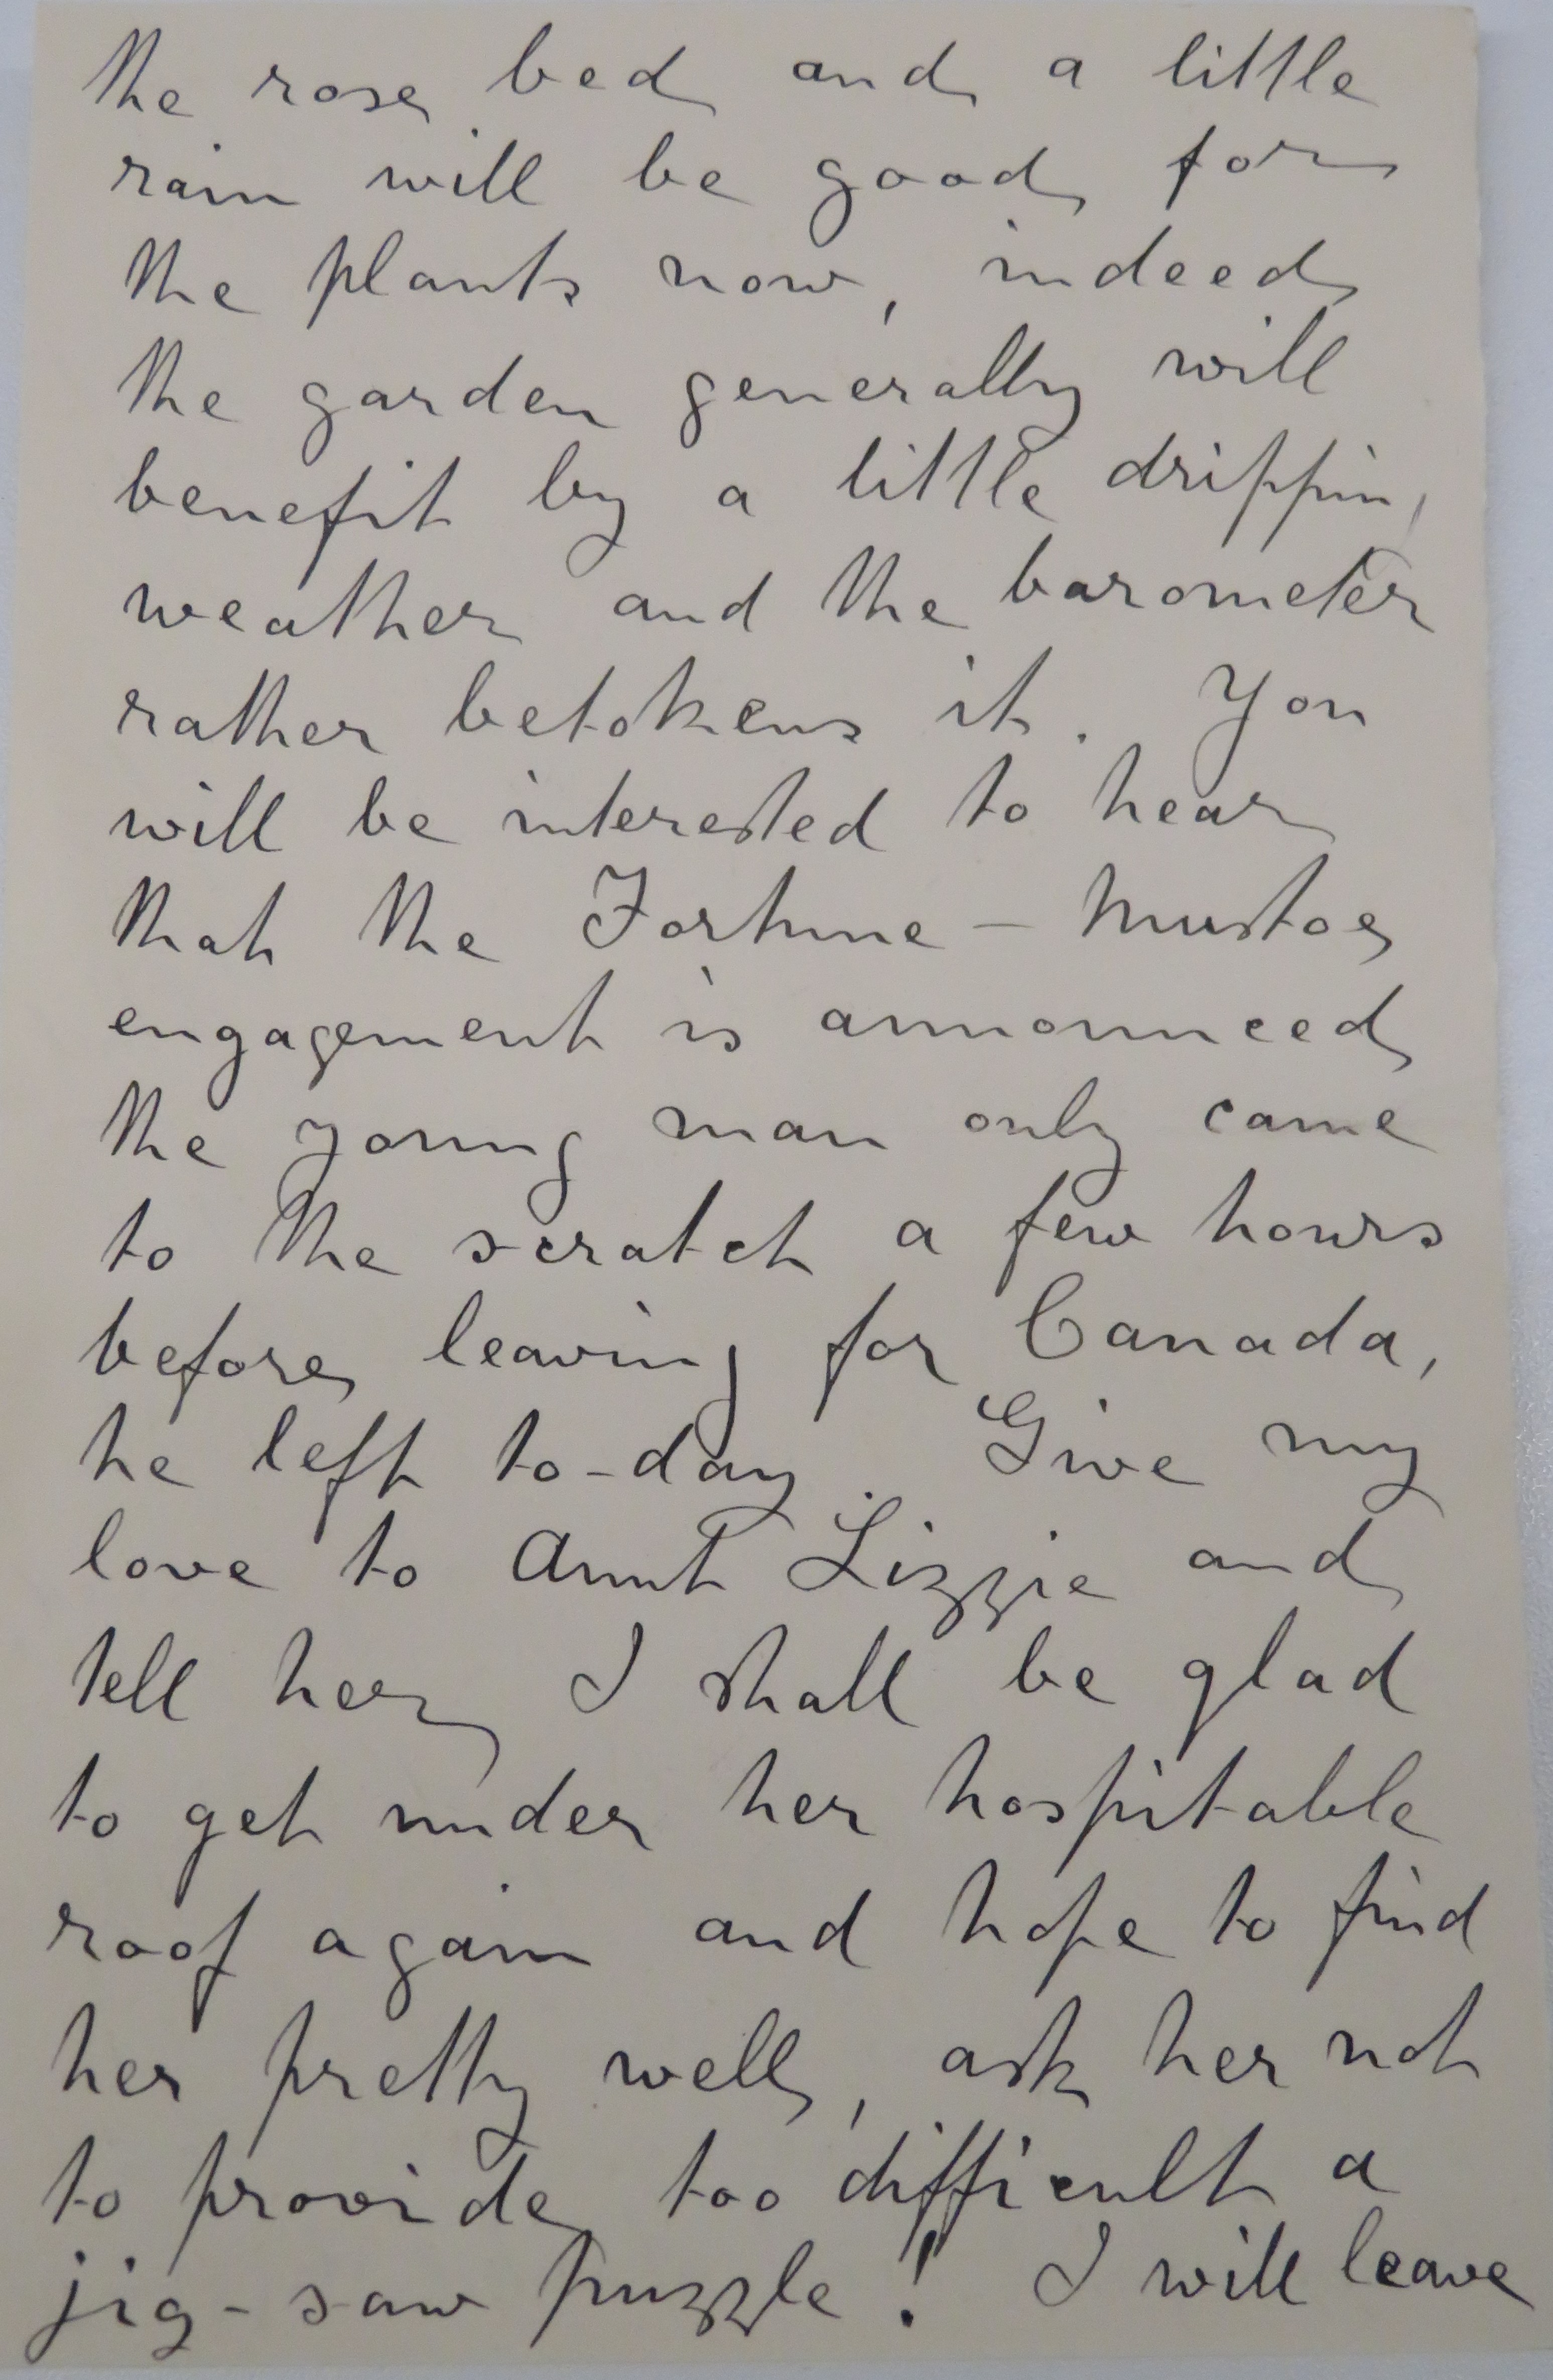 the rose bed and a little
rain will be good for
the plants now, indeed
the garden generally will
benefit by a little drippin,
weather and the barometer
rather betokens it. You
will be interested to hear
that the Fortune - Mustoe
engagement is announced
the young man only came
to the scratch a few hours
before leaving for Canada,
he left to-day. Give my
love to Aunt Lizzie and
tell her I shall be glad
to get under her hospitable
roof again and hope to find
her pretty well, ask her not
to provide too difficult a
jig-saw puzzle! I will leave